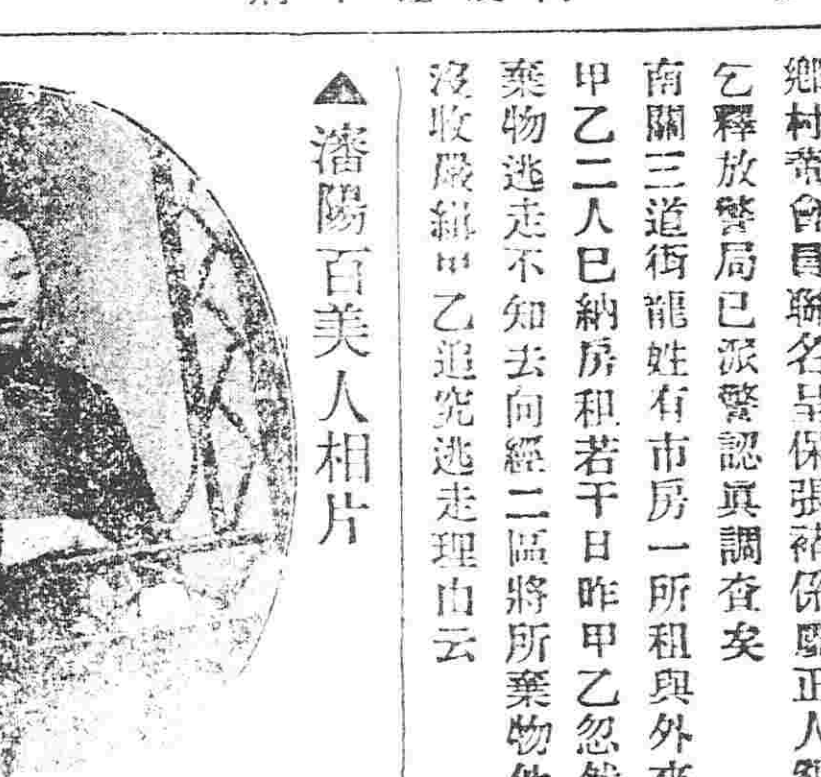 鄉村帮會員聯名呈保張褚係正人
乞釋放警局已派警認眞調查矣
南關三道街龍姓有市房一所租與外來
甲乙二人已納房租若干日昨甲乙忽然
棄物逃走不知去向經二區將所棄物件
沒收嚴緝甲乙追究逃走理由云
▲瀋陽百美人相片